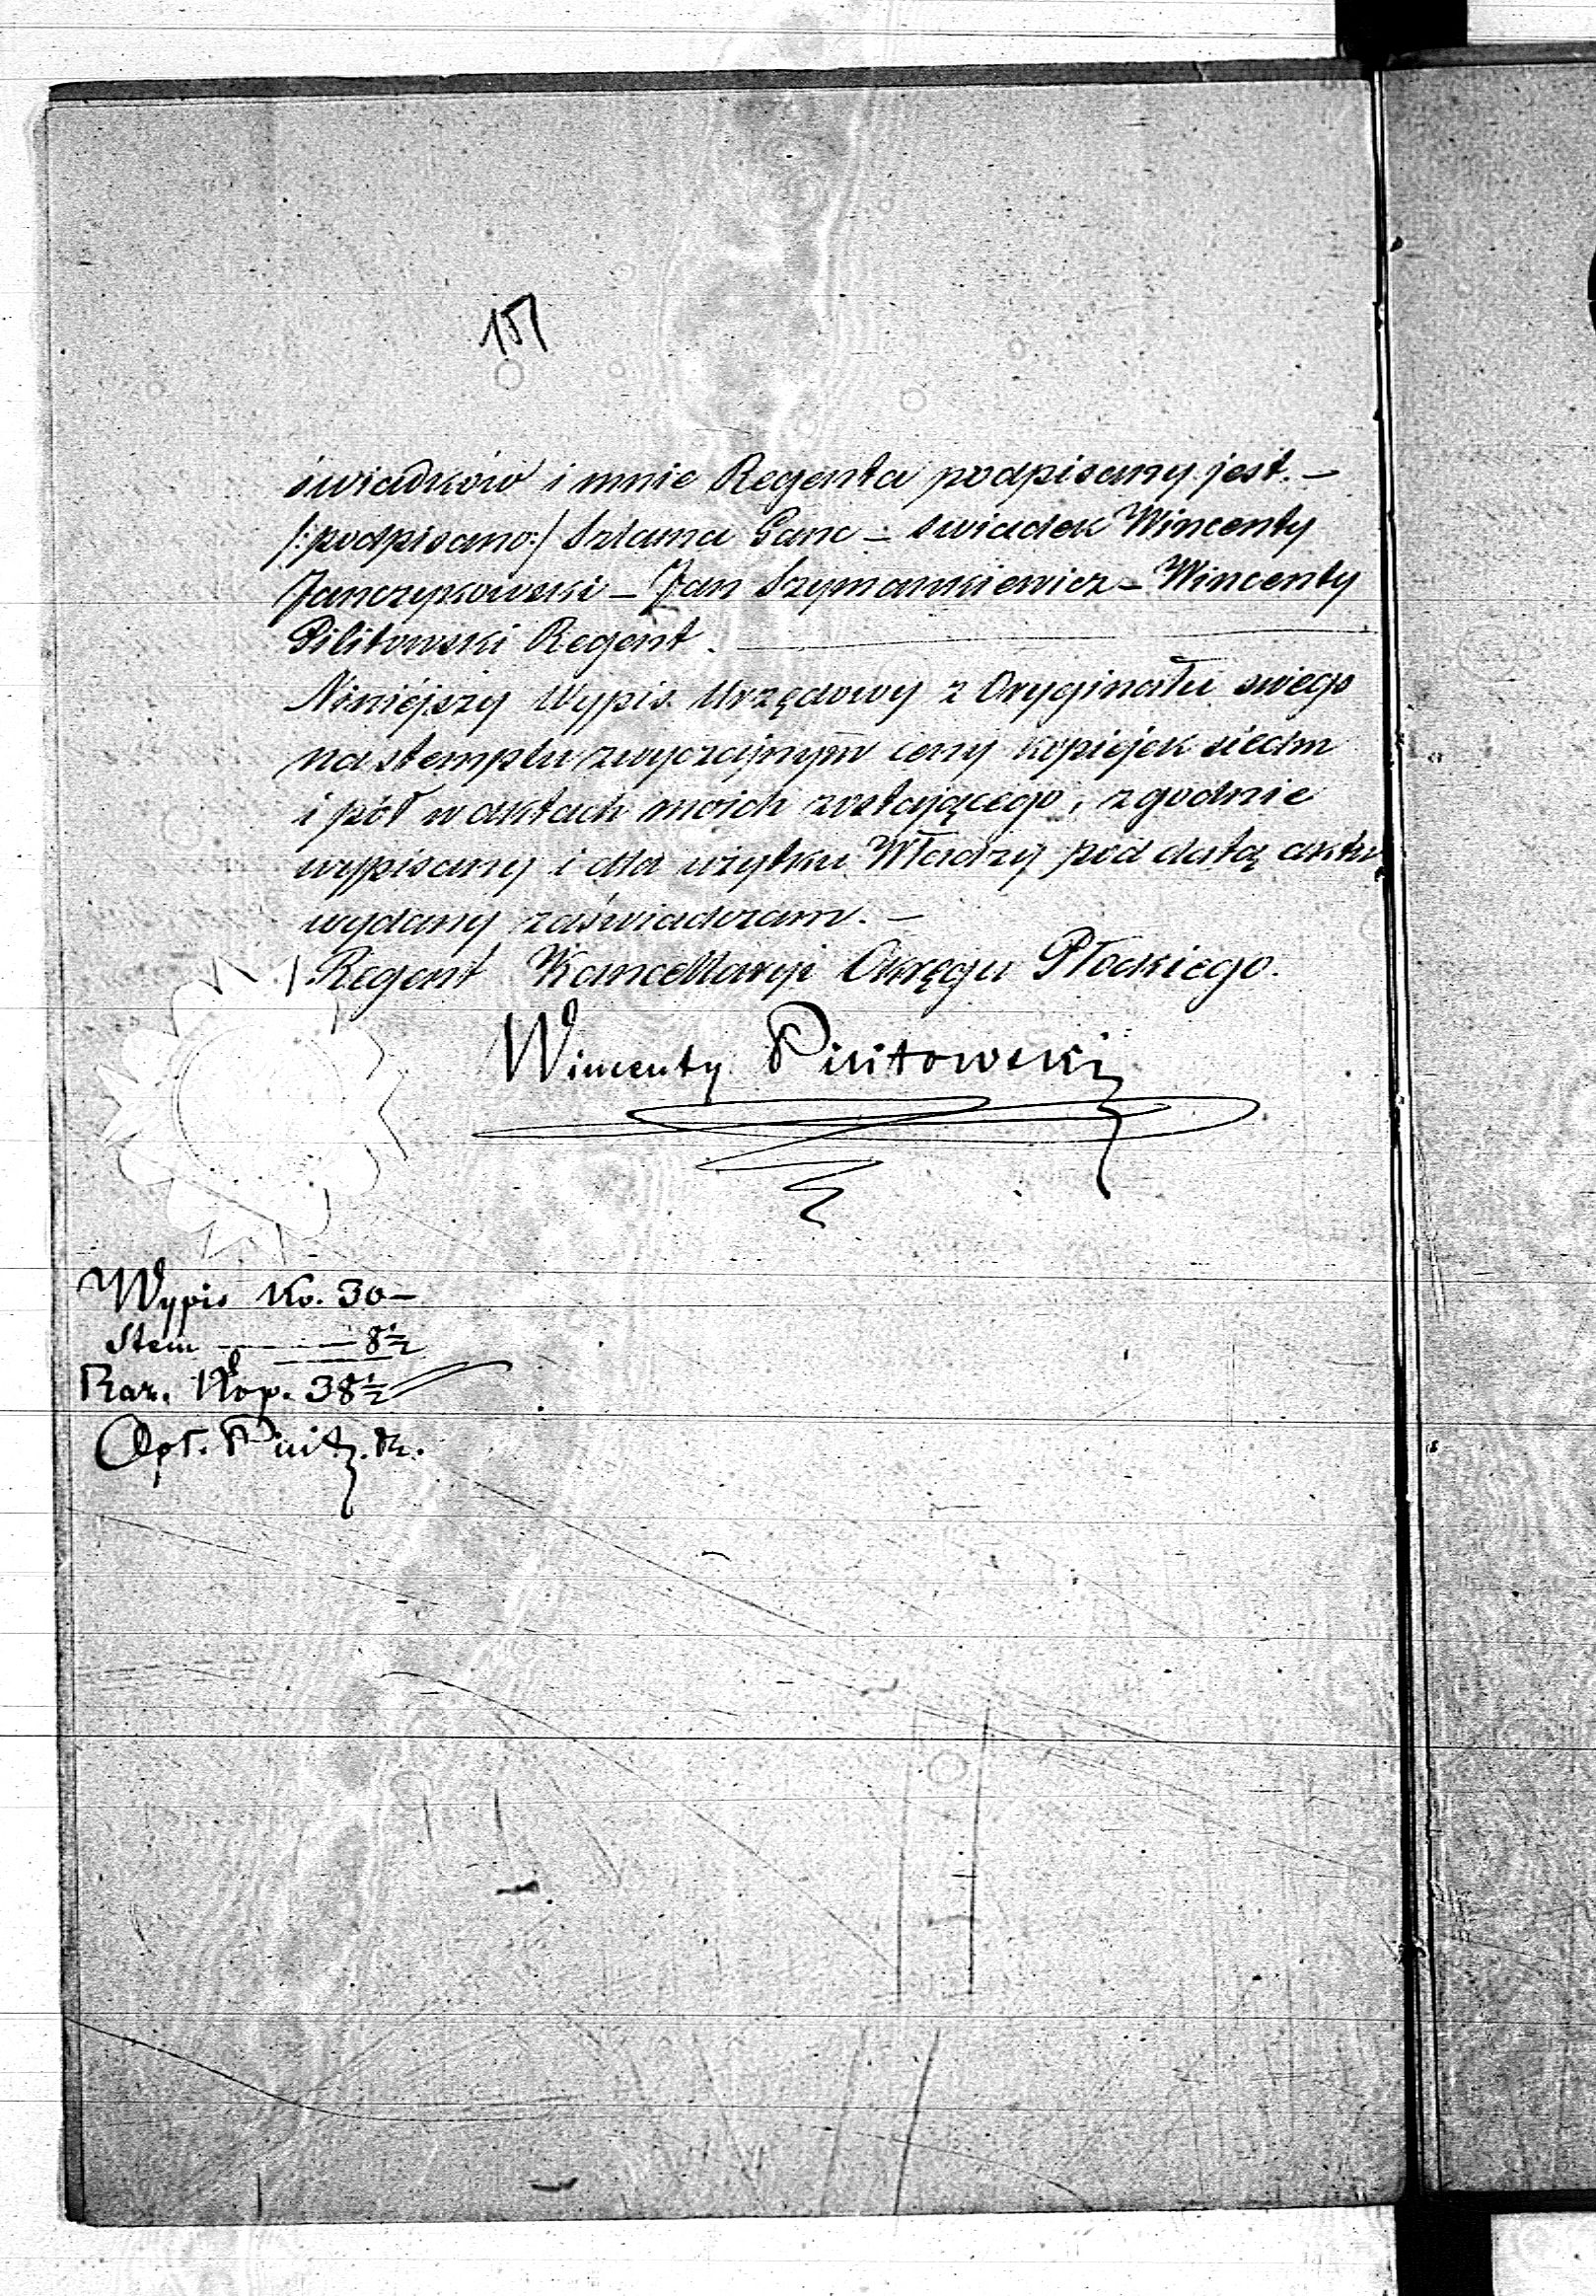 151
świadków i mnie Regenta podpisany jest. —
/:podpisano:/ Szlama Ganc — świadek Wincenty
Janczykowski — Jan Szymankiewicz — Wincenty
Pilitowski Regent.
Niniéjszy Wypis Urzędowy z Oryginału swego
na stemplu zwyczajnym ceny kopiejek siedm
i pół w aktach moich zostającego, zgodnie
wypisany i dla użytku Władzy pod datą aktu
wydany zaświadczam. —
Regent Kancellaryi Okręgu Płockiego.
Wincenty Pilitowski
Wypis Ko. 30 —
Stem — 8½
Raz. Kop. 38½